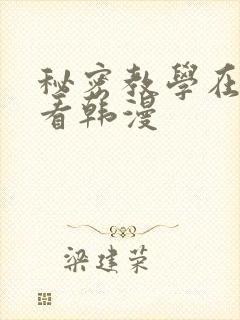 秘密教學在
看韩漫
梁建荣